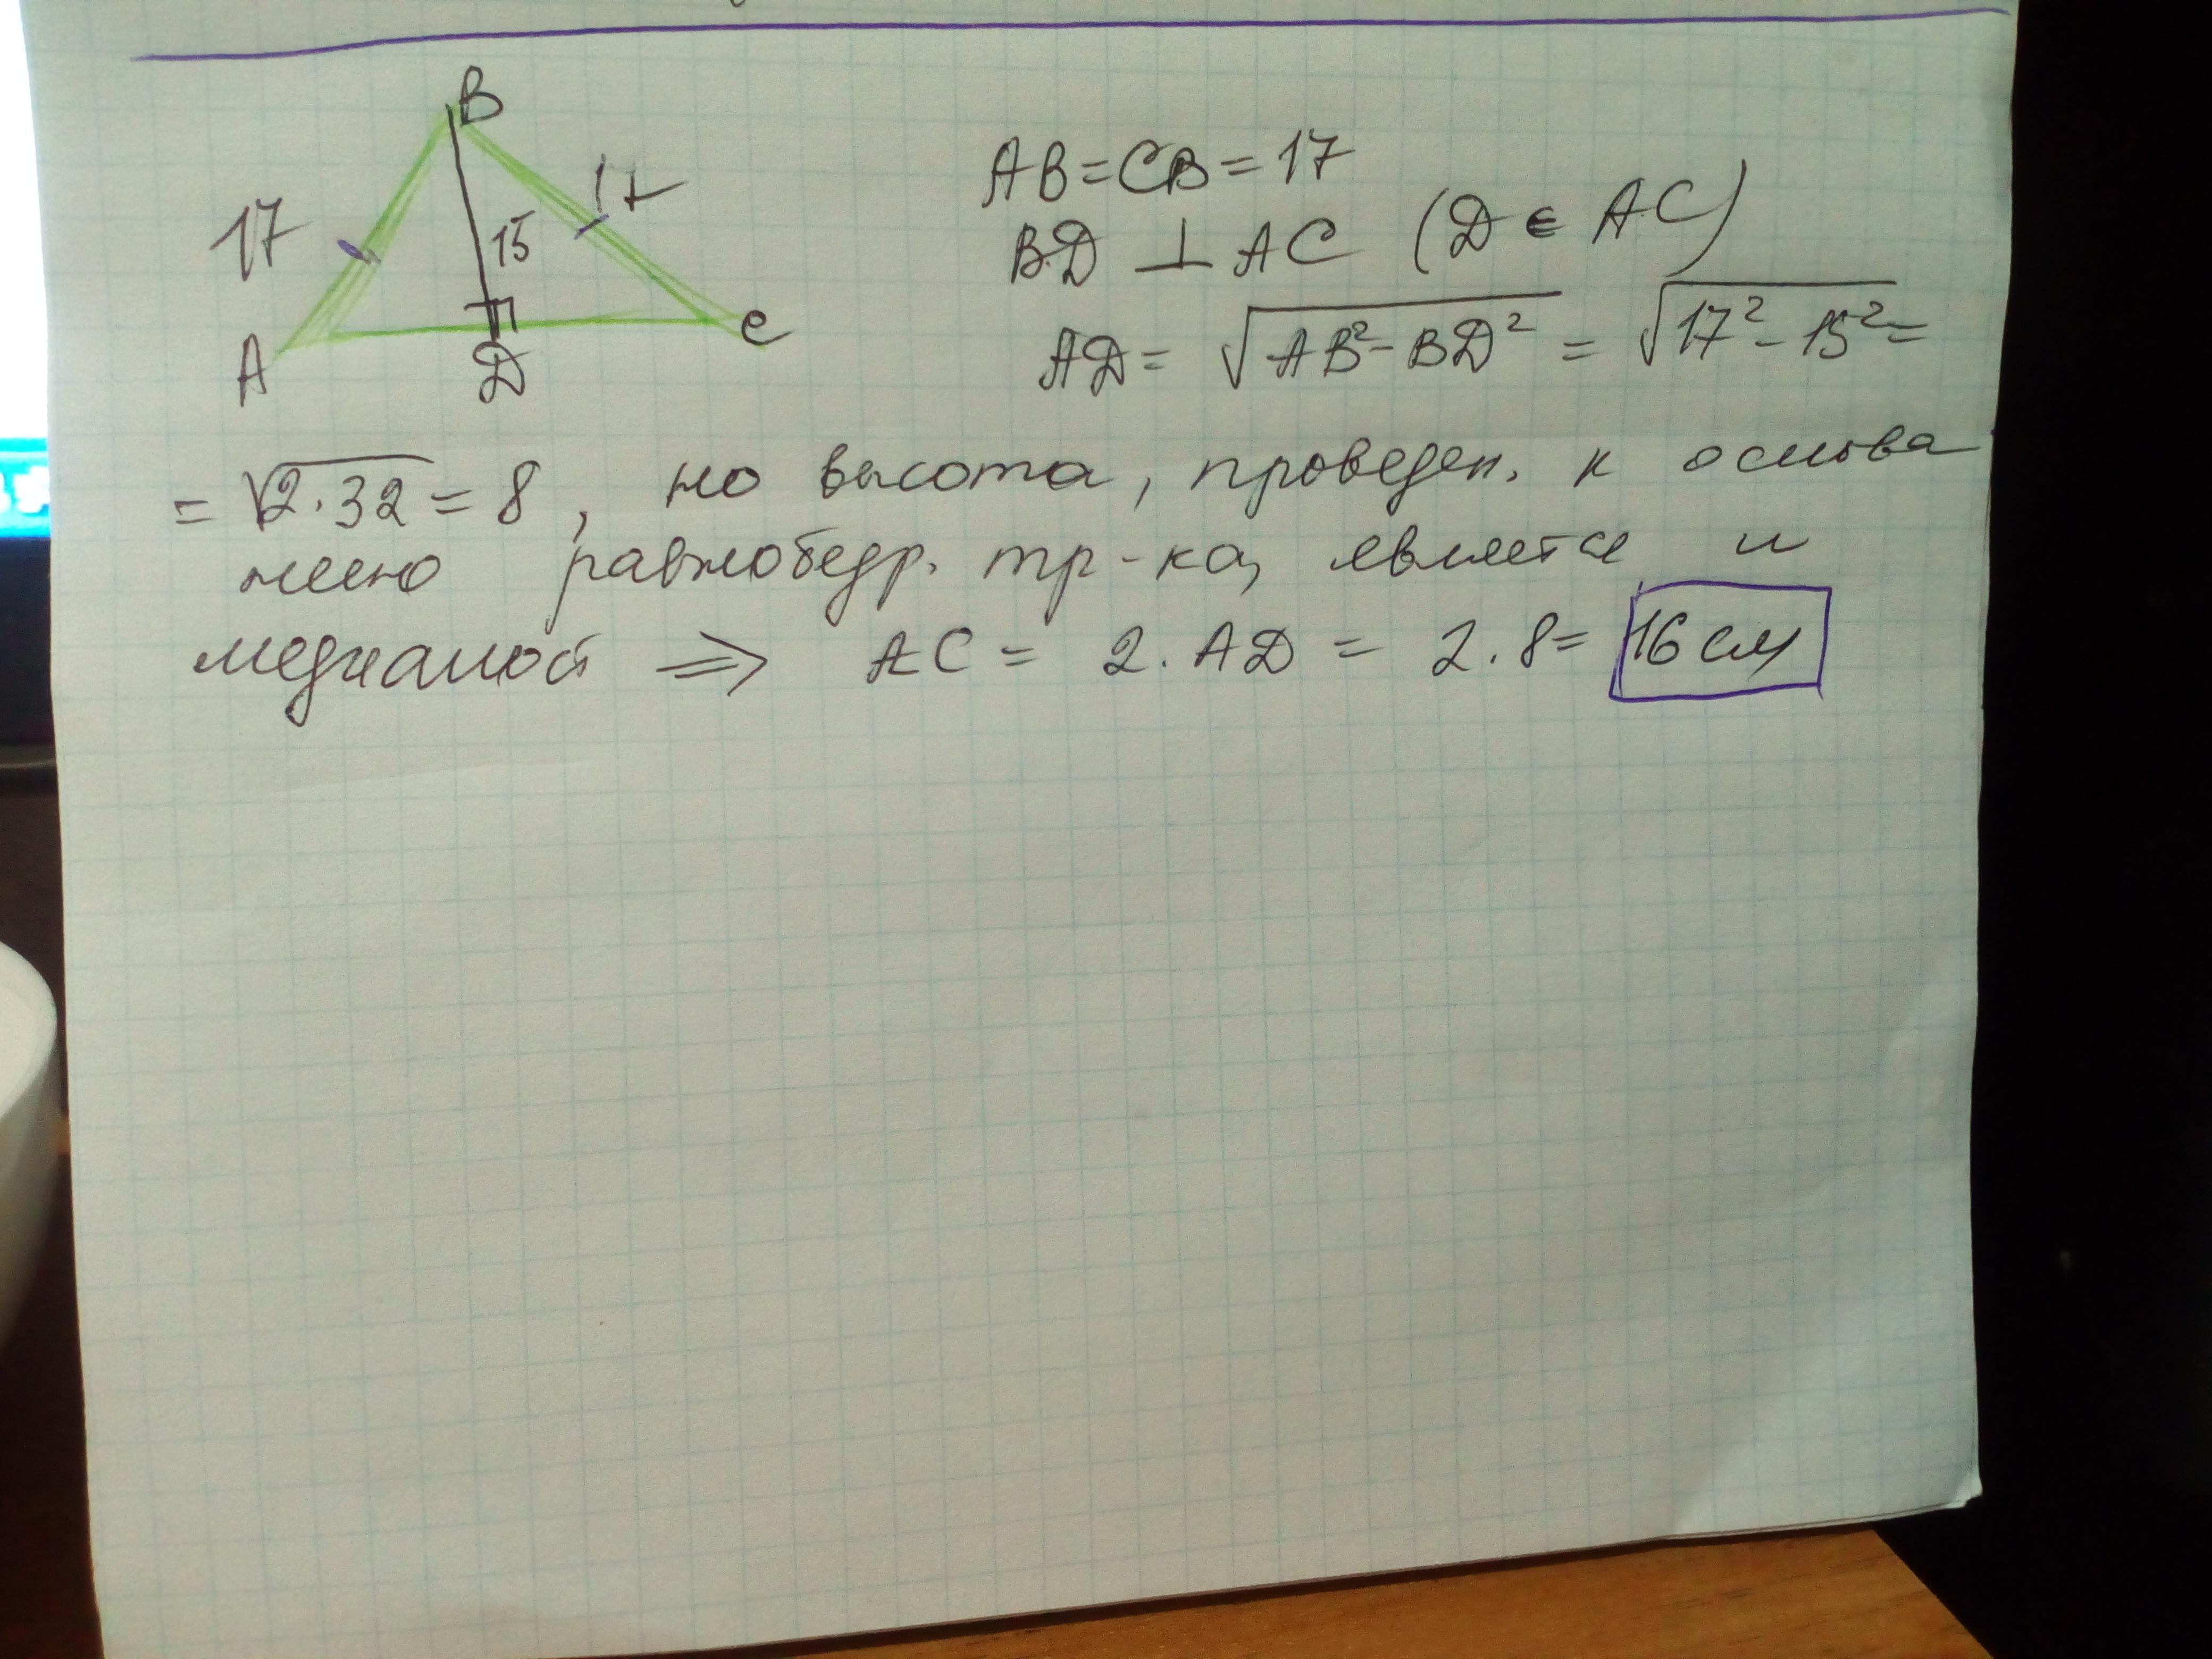 B
17
17
15
A
Д
C
AB=CB=17
BД ⊥ AC (Д ∈ AC)
AД = √AB²-BД² = √17²-15² =
= √2·32 = 8, но высота, проведен. к основа
нию равнобедр. тр-ка, является и
медианой => AC = 2·AД = 2·8= 16 см